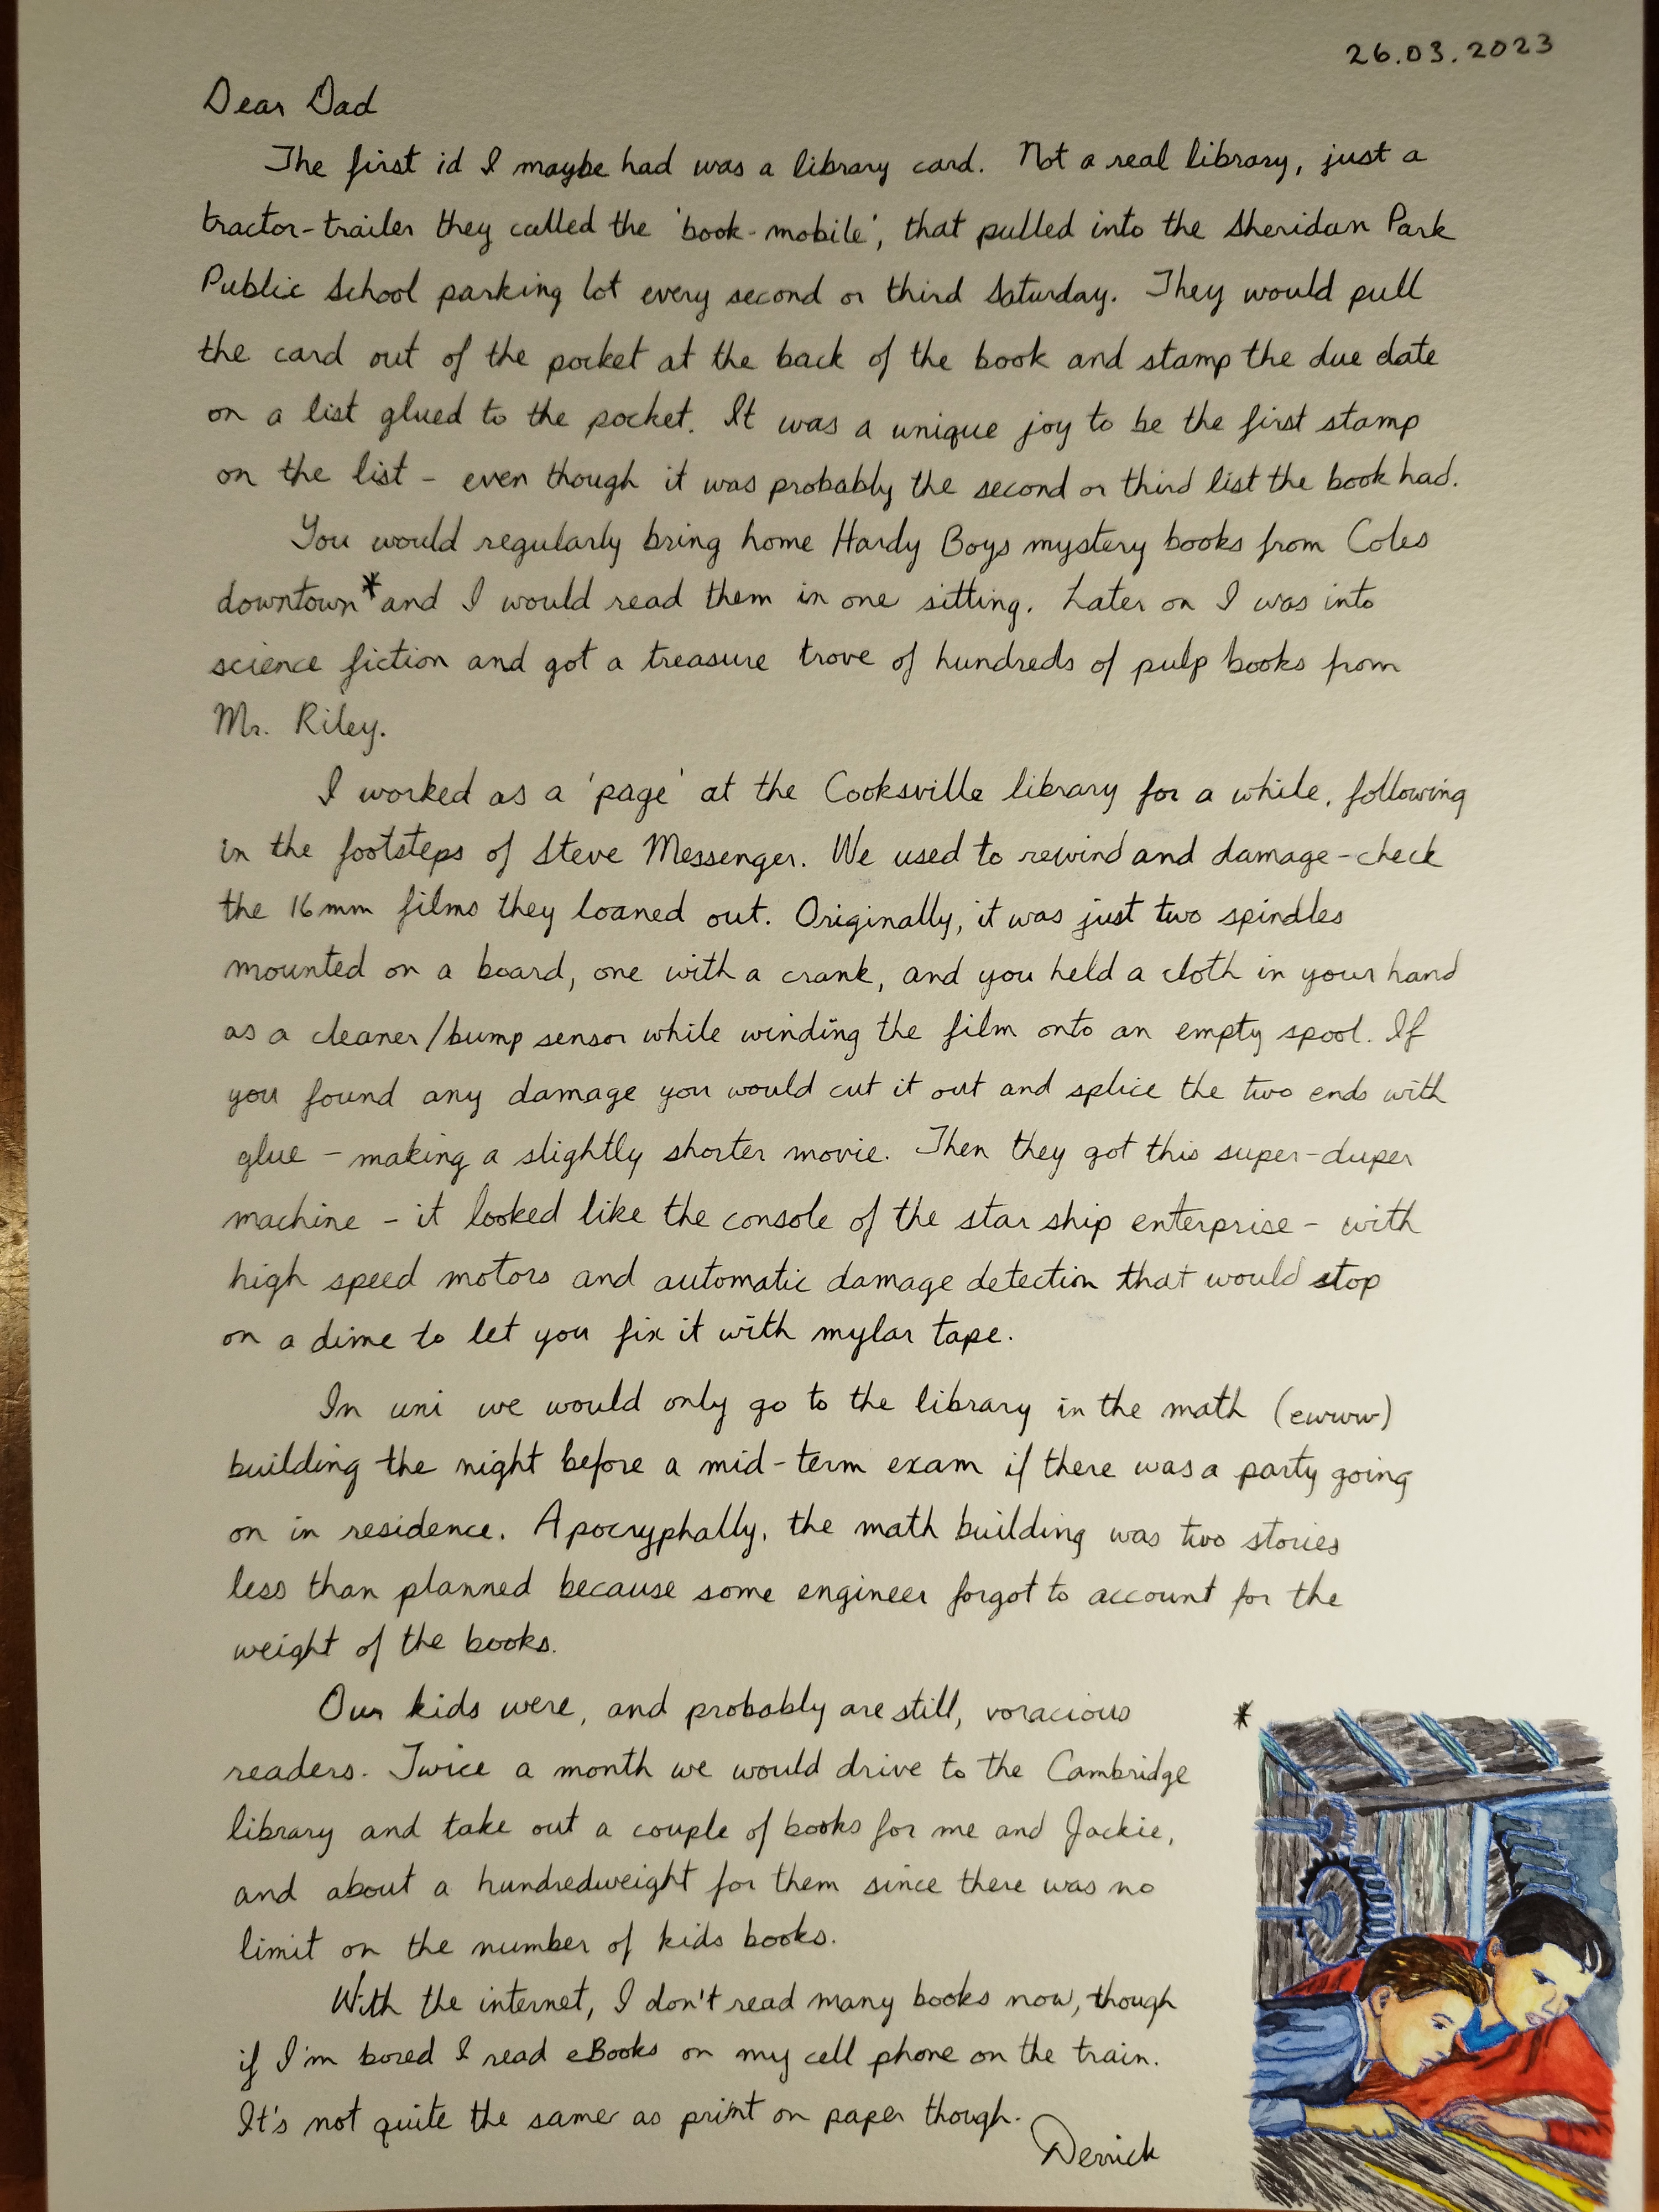 26.03.2023
Dear Dad
The first id I maybe had was a library card. Not a real library, just a
tractor-trailer they called the 'book-mobile', that pulled into the Sheridan Park
Public School parking lot every second or third Saturday. They would pull
the card out of the pocket at the back of the book and stamp the due date
on a list glued to the pocket. It was a unique joy to be the first stamp
on the list - even though it was probably the second or third list the book had.
You would regularly bring home Hardy Boys mystery books from Coles
downtown* and I would read them in one sitting. Later on I was into
science fiction and got a treasure trove of hundreds of pulp books from
Mr. Riley.
I worked as a 'page' at the Cooksville library for a while, following
in the footsteps of Steve Messenger. We used to rewind and damage-check
the 16mm films they loaned out. Originally, it was just two spindles
mounted on a board, one with a crank, and you held a cloth in your hand
as a cleaner/bump sensor while winding the film onto an empty spool. If
you found any damage you would cut it out and splice the two ends with
glue - making a slightly shorter movie. Then they got this super-duper
machine - it looked like the console of the star ship enterprise - with
high speed motors and automatic damage detection that would stop
on a dime to let you fix it with mylar tape.
In uni we would only go to the library in the math (ewww)
building the night before a mid-term exam if there was a party going
on in residence. Apocryphally, the math building was two stories
less than planned because some engineer forgot to account for the
weight of the books.
Our kids were, and probably are still, voracious
readers. Twice a month we would drive to the Cambridge
library and take out a couple of books for me and Jackie,
and about a hundredweight for them since there was no
limit on the number of kids books.
With the internet, I don't read many books now, though
if I'm bored I read eBooks on my cell phone on the train.
It's not quite the same as print on paper though.
Derrick
*